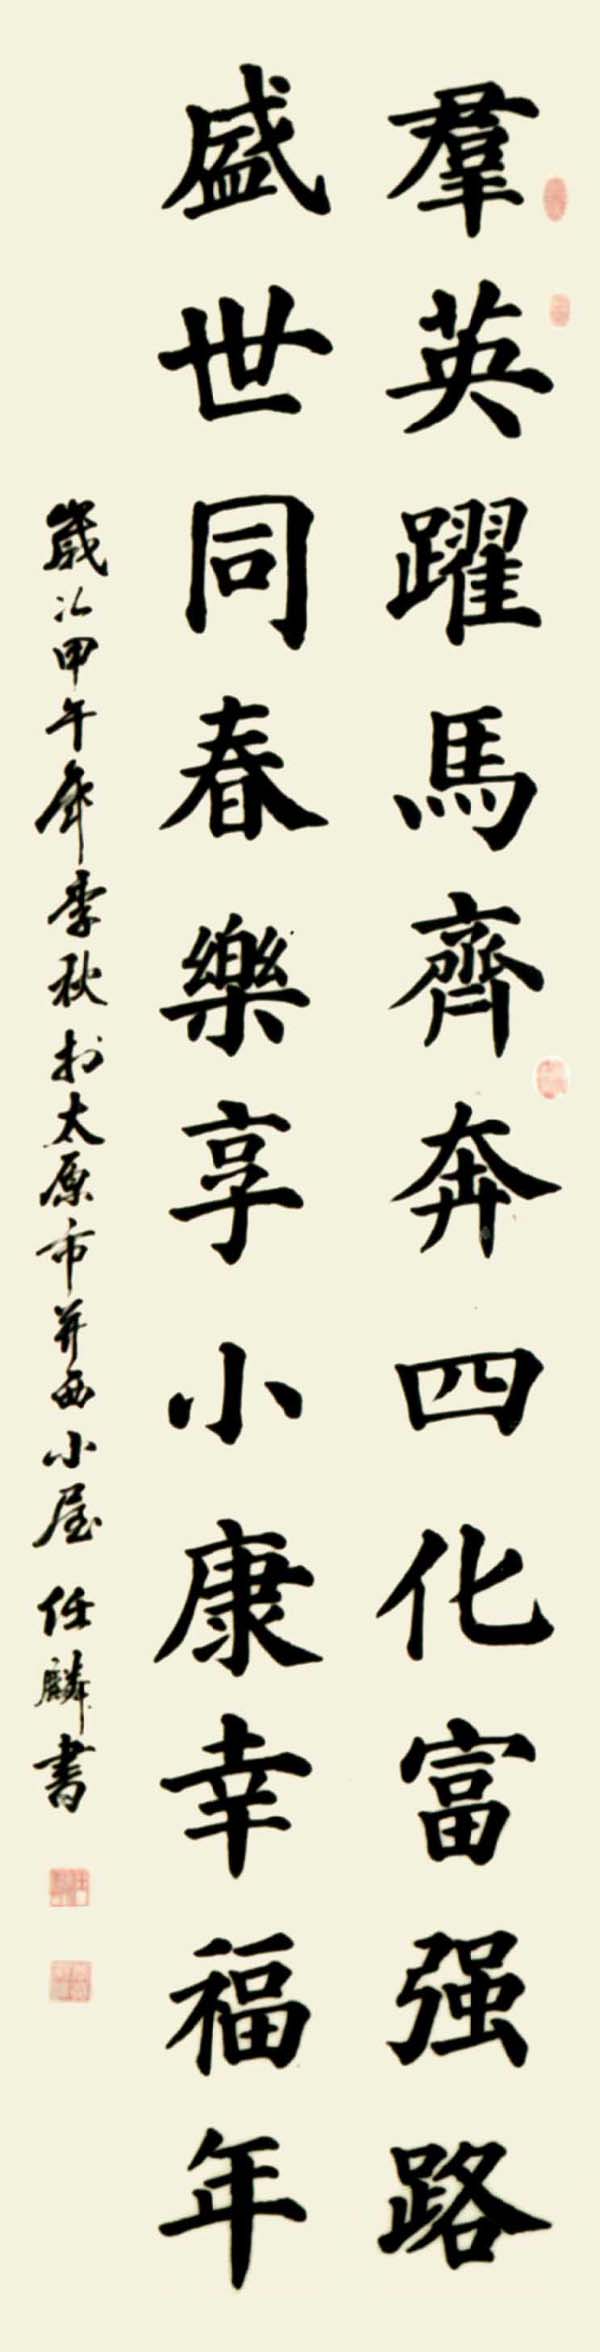 羣英躍馬齊奔四化富强路
盛世同春樂享小康幸福年
歲次甲午年季秋於太原市并西小屋 任麟書